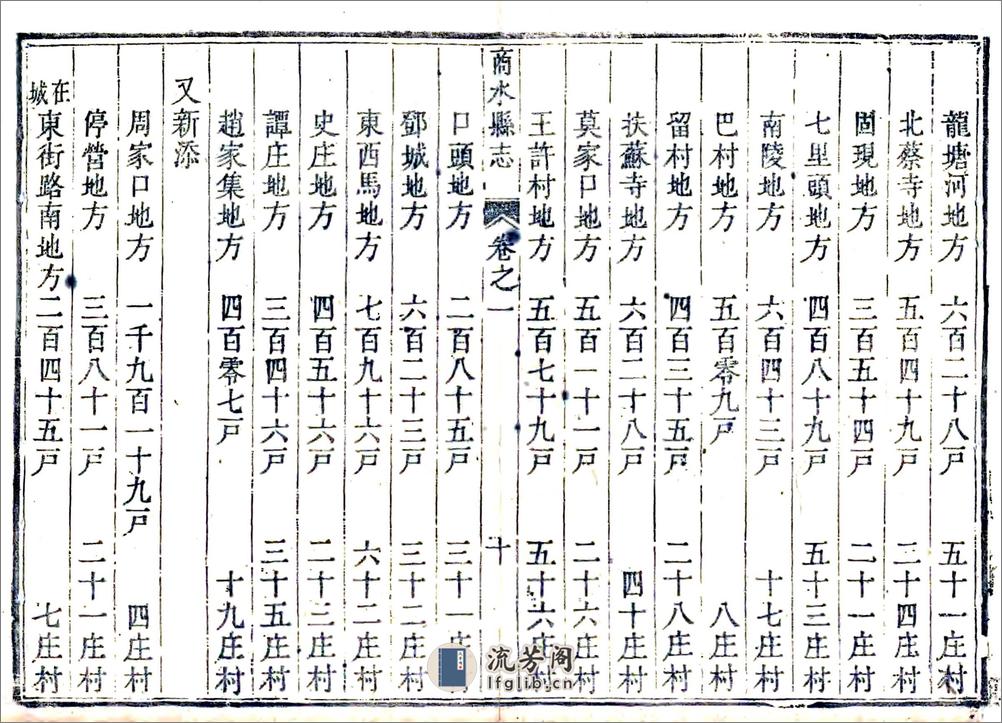 龍塘河地方 六百二十八戸 五十一庄村
北蔡寺地方 五百四十九戸 二十四庄村
固現地方 三百五十四戸 二十一庄村
七里頭地方 四百八十九戸 五十三庄村
南陵地方 六百四十三戸 十七庄村
巴村地方 五百零九戸 八庄村
留村地方 四百三十五戸 二十八庄村
扶蘇寺地方 六百二十八戸 四十庄村
莫家口地方 五百一十一戸 二十六庄村
王許村地方 五百七十九戸 五十六庄村
商水縣志 卷之一 十
口頭地方 二百八十五戸 三十一庄村
鄧城地方 六百二十三戸 三十二庄村
東西馬地方 七百九十六戸 六十二庄村
史庄地方 四百五十六戸 二十三庄村
譚庄地方 三百四十六戸 三十五庄村
趙家集地方 四百零七戸 十九庄村
又新添
周家口地方 一千九百一十九戸 四庄村
停營地方 三百八十一戸 二十一庄村
在城東街路南地方 二百四十五戸 七庄村
流芳阁
lfglib.cn